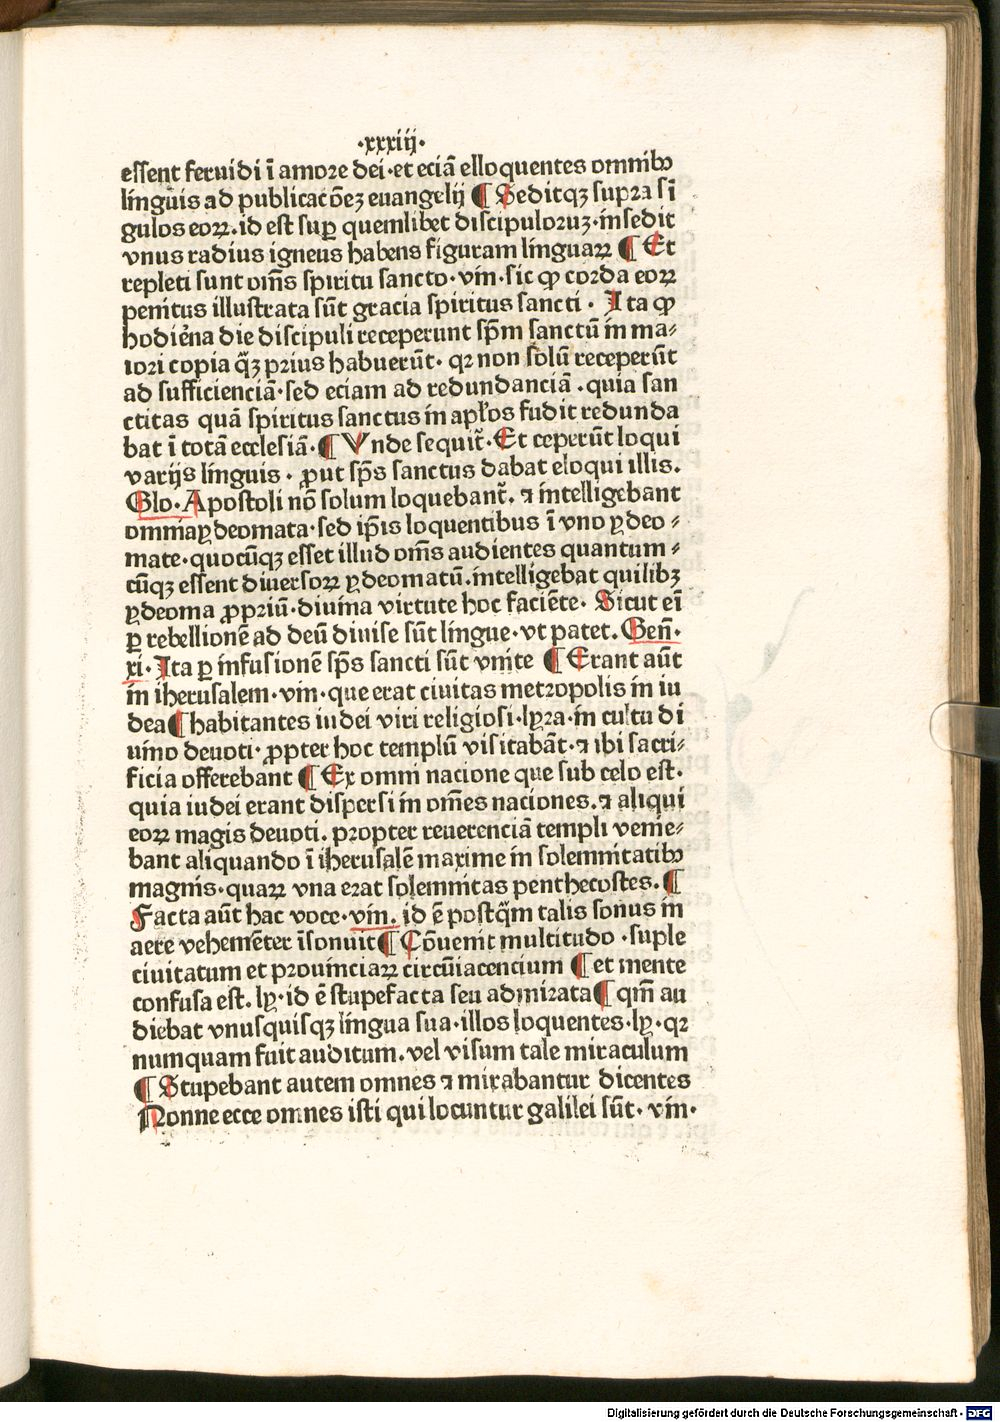 ·xxxiij·
essent feruidi ī amore dei·et eciā elloquentes omnibꝰ
linguis ad publicacōeꝫ euangelij ¶ Seditqꝫ supra sī
gulos eoꝝ.id est suꝑ quemlibet discipuloruꝫ·insedit
vnus radius igneus habens figuram linguaꝝ ¶ Et
repleti sunt om̄s spiritu sancto·vin·sic ꝙ corda eoꝝ
penitus illustrata sūt gracia spiritus sancti· Ita ꝙ
hodierna die discipuli receperunt sp̄m sanctū in ma⸗
iori copia q̄ꝫ prius habuerūt· qꝛ non solū receperūt
ad sufficienciā·sed eciam ad redundanciā·quia san
ctitas quā spiritus sanctus in apl̄os fudit redunda
bat ī totā ecclesiā·¶ Vnde sequit̄·Et ceperūt loqui
varijs linguis· ꝓut sp̄s sanctus dabat eloqui illis.
Glo·Apostoli nō solum loquebant̄. ⁊ intelligebant
omnia ydeomata·sed ip̄is loquentibus ī vno ydeo⸗
mate·quocūqꝫ esset illud om̄s audientes quantum⸗
cūqꝫ essent diuersoꝝ ydeomatū.intelligebat quilibꝫ
ydeoma ꝓpriū·diuina virtute hoc faciēte· Sicut eī
ꝑ rebellionē ad deū diuise sūt lingue·vt patet. Gen̄·
xi· Ita ꝑ infusionē sp̄s sancti sūt vnite ¶ Erant aūt
in iherusalem·vin·que erat ciuitas metropolis in iu
dea ¶ habitantes iudei viri religiosi·lyra·in cultu di
uino deuoti· ꝓpter hoc templū visitabāt·⁊ ibi sacri⸗
ficia offerebant ¶ Ex omni nacione que sub celo est·
quia iudei erant dispersi in om̄es naciones.⁊ aliqui
eoꝝ magis deuoti. propter reuerenciā templi venie⸗
bant aliquando ī iherusalē maxime in solemnitatibꝰ
magnis·quaꝝ vna erat solemnitas penthecostes.¶
Facta aūt hac voce·vin. id ē postq̄m talis sonus in
aere vehemēter īsonuit ¶ Cōuenit multitudo·suple
ciuitatum et prouinciaꝝ circūiacencium ¶ et mente
confusa est.ly·id ē stupefacta seu admirata ¶ qm̄ au
diebat vnusquisqꝫ lingua sua·illos loquentes·ly·qꝛ
numquam fuit auditum.vel visum tale miraculum
¶ Stupebant autem omnes ⁊ mirabantur dicentes
Nonne ecce omnes isti qui locuntur galilei sūt·vin·
Digitalisierung gefördert durch die Deutsche Forschungsgemeinschaft - DFG